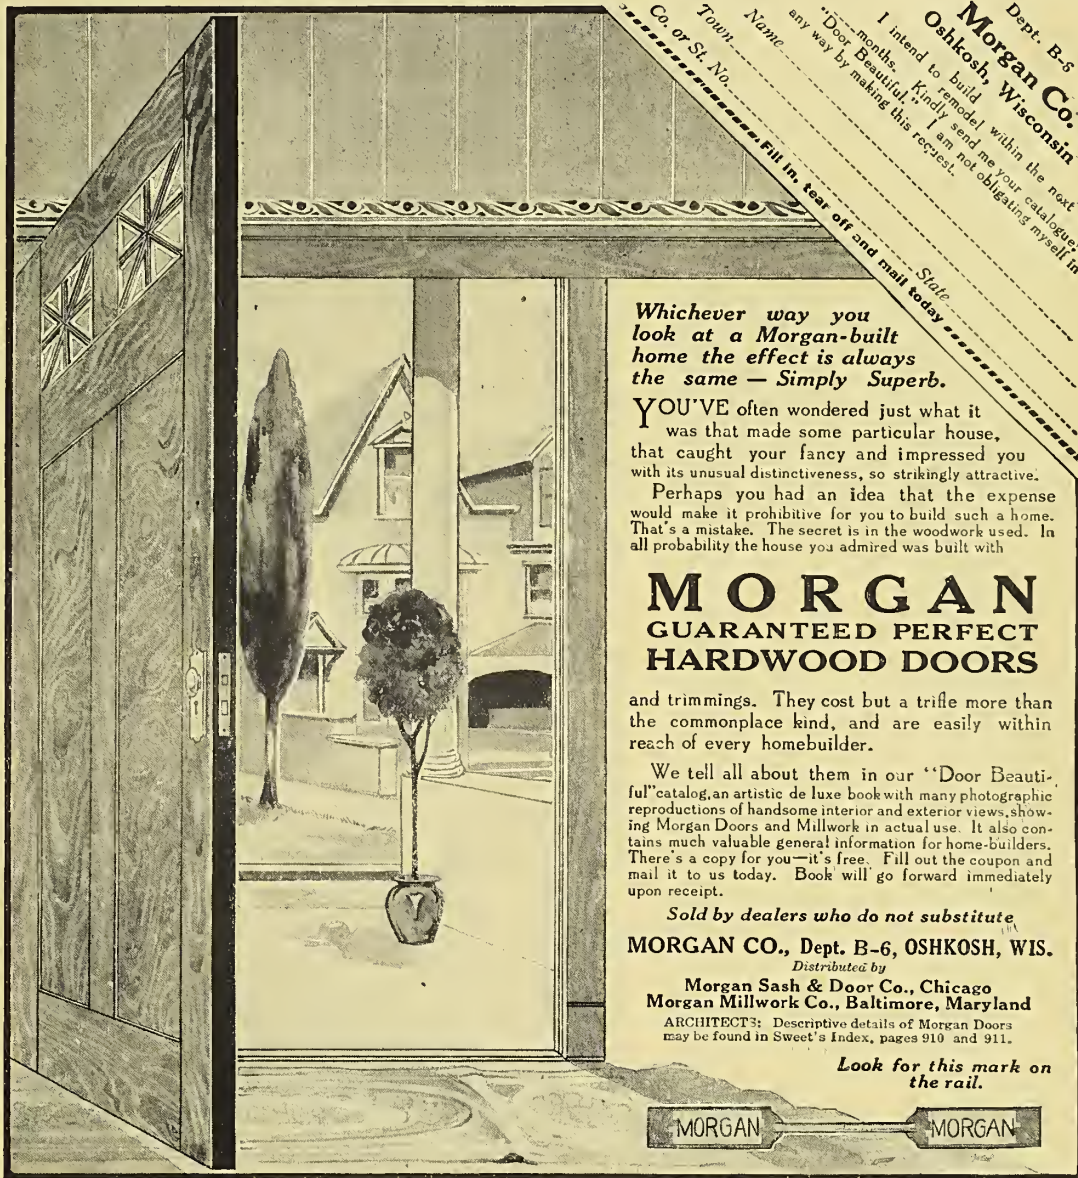 Dept.
Morgan Co.
Oshkosh, Wisconsin
I intend to build
remodel within the next
months. Kindly send me your catalogue,
"Door Beautiful." I am not obligating myself in
any way by making this request.
Name
Town State
Co. or St. No.
Fill in, tear off and mail today
Whichever way you
look at a Morgan-built
home the effect is always
the same — Simply Superb.
YOU'VE often wondered just what it
was that made some particular house,
that caught your fancy and impressed you
with its unusual distinctiveness, so strikingly attractive.
Perhaps you had an idea that the expense
would make it prohibitive for you to build such a home.
That's a mistake. The secret is in the woodwork used. In
all probability the house you admired was built with
MORGAN
GUARANTEED PERFECT
HARDWOOD DOORS
and trimmings. They cost but a trifle more than
the commonplace kind, and are easily within
reach of every homebuilder.
We tell all about them in our "Door Beauti-
ful" catalog, an artistic de luxe book with many photographic
reproductions of handsome interior and exterior views, show-
ing Morgan Doors and Millwork in actual use. It also con-
tains much valuable general information for home-builders.
There's a copy for you—it's free. Fill out the coupon and
mail it to us today. Book will go forward immediately
upon receipt.
Sold by dealers who do not substitute
MORGAN CO., Dept. B-6, OSHKOSH, WIS.
Distributed by
Morgan Sash & Door Co., Chicago
Morgan Millwork Co., Baltimore, Maryland
ARCHITECTS: Descriptive details of Morgan Doors
may be found in Sweet's Index, pages 910 and 911.
Look for this mark on
the rail.
MORGAN MORGAN